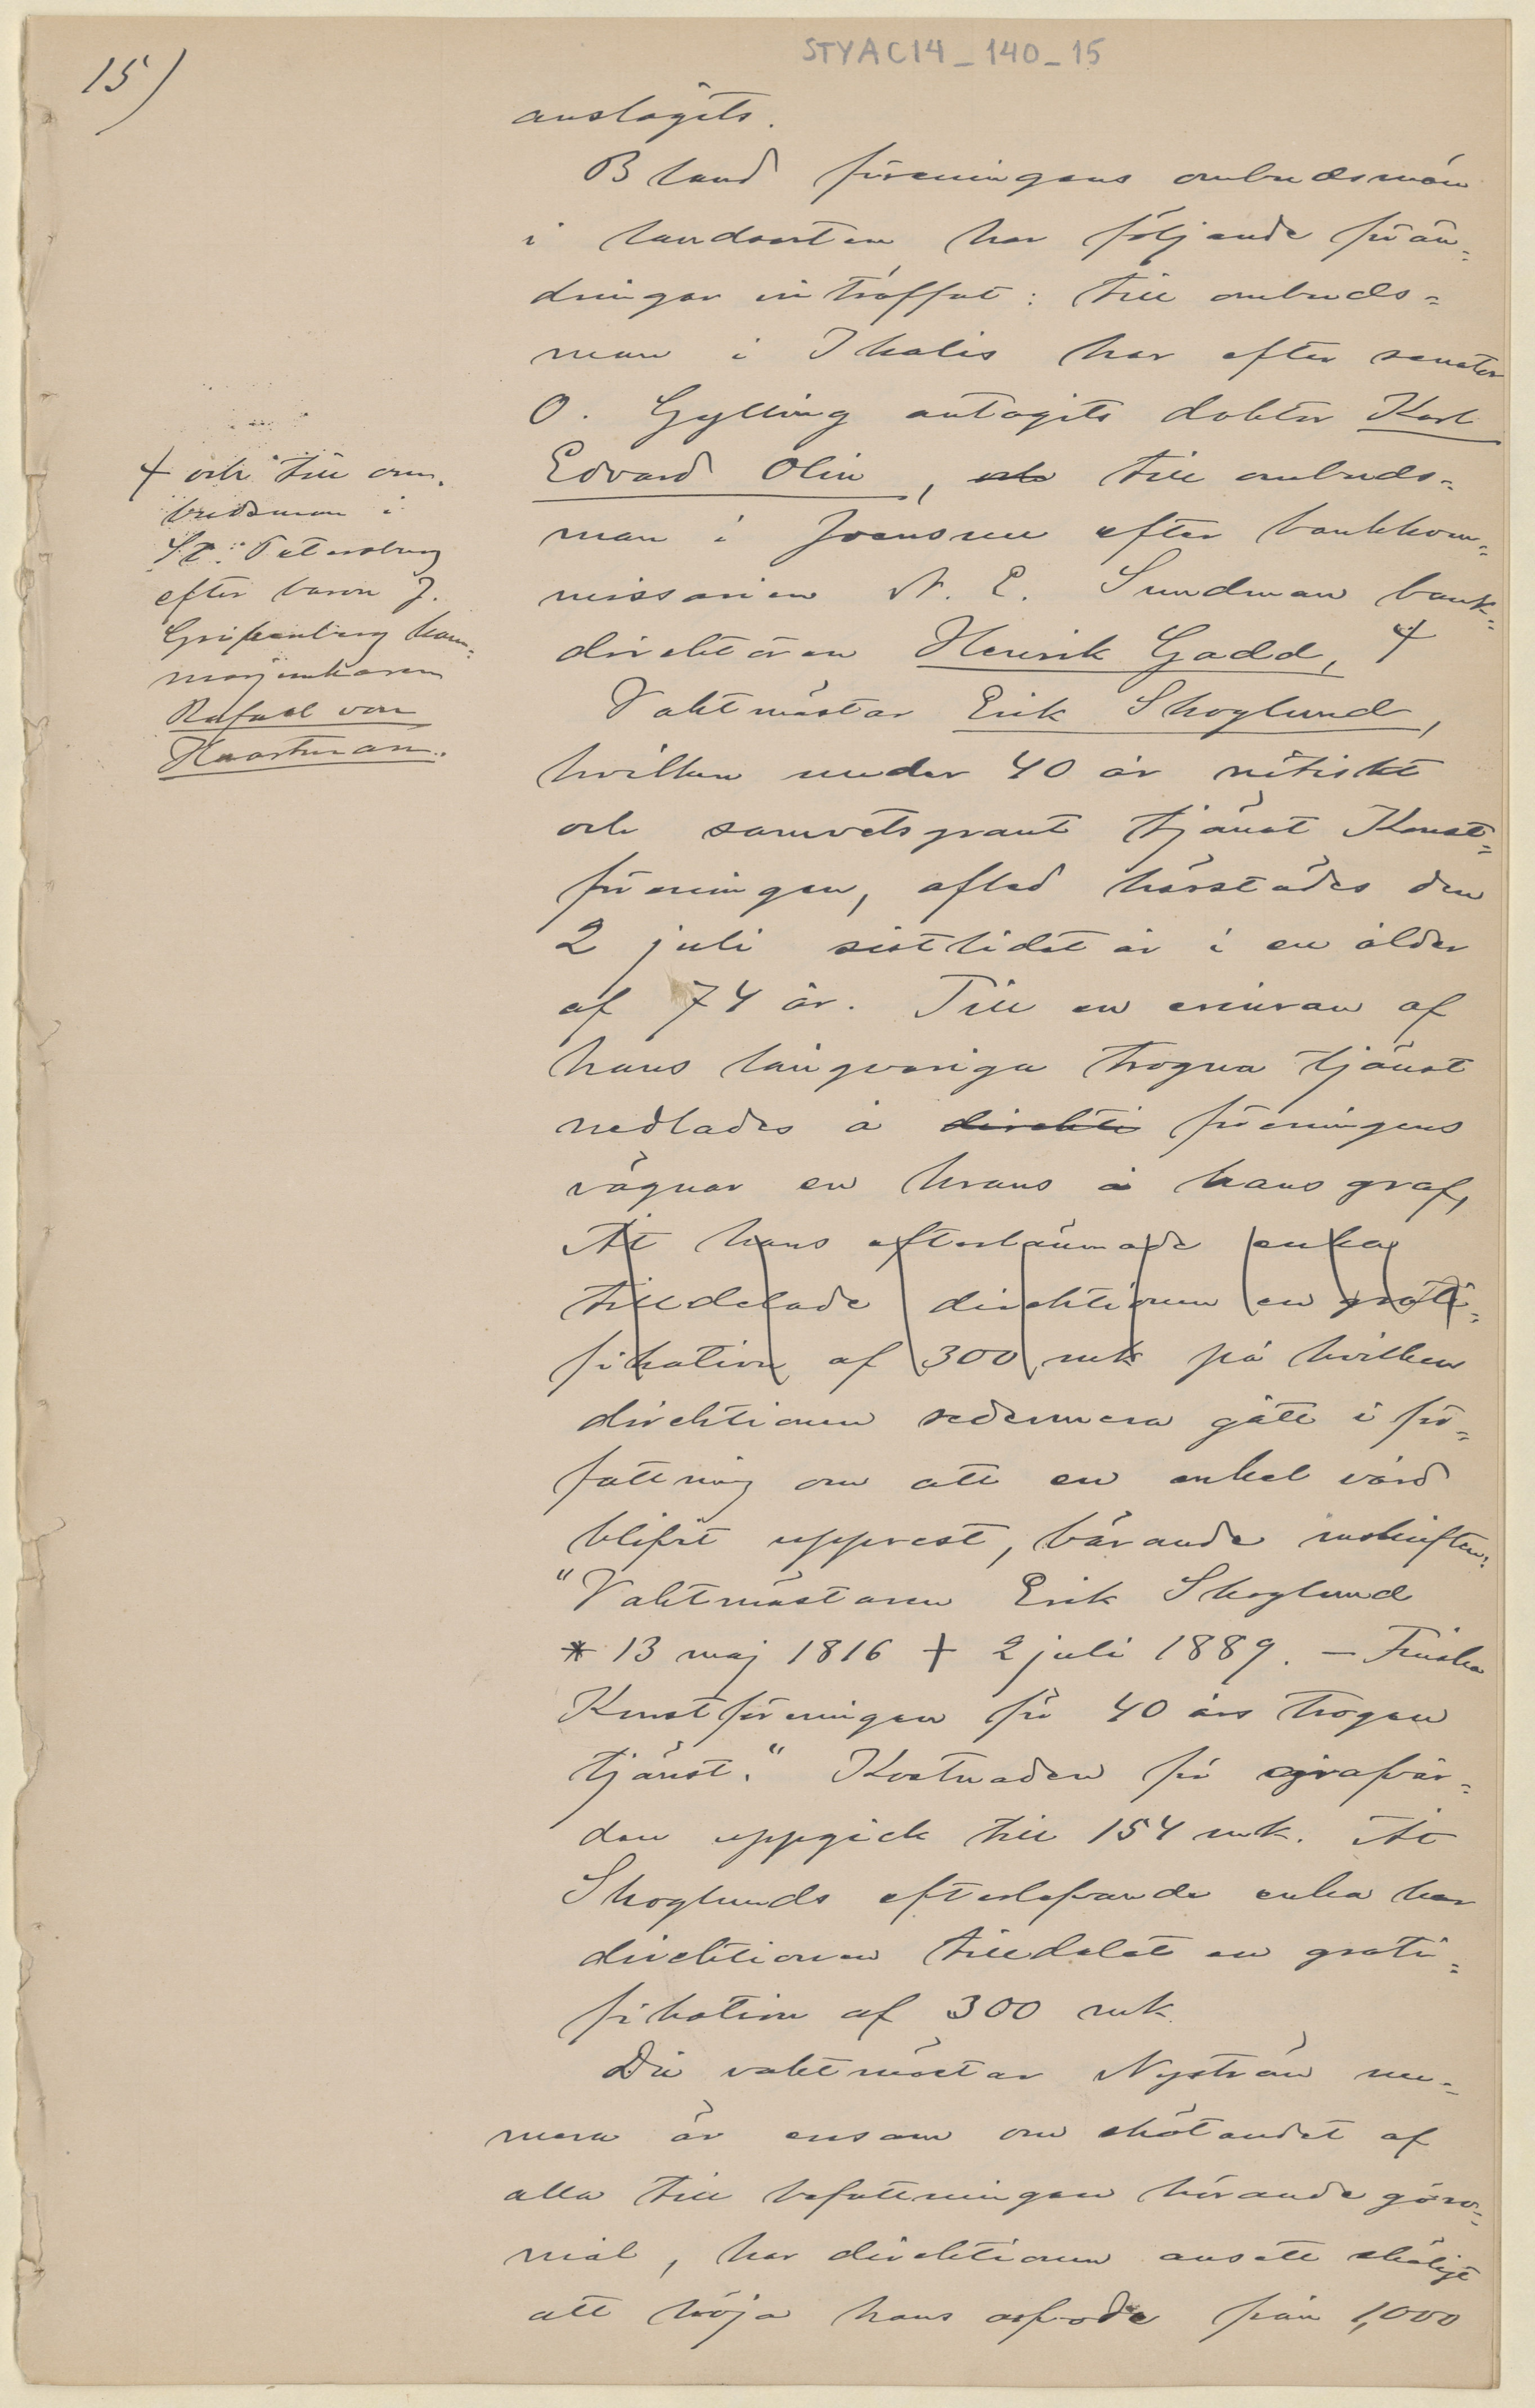 STYAC14_140_15
15)
anslagits.
Bland föreningens ombudsmän
i landsorten har följande förän-
dringar inträffat: till ombuds-
man i Ikalis har efter senator
O. Gylling antagits doktor Karl
Edvard Olin, och till ombuds-
man i Joensuu efter bankkom-
missarien A. E. Sundman bank-
direktören Henrik Gadd, +
+ och till om-
budsman i
St. Petersburg
efter baron J.
Gripenberg kam-
marjunkaren
Rafael von
Haartman.
Vaktmästar Erik Skoglund,
hvilken under 40 år nitiskt
och samvetsgrant tjänat Konst-
föreningen, afled härstädes den
2 juli sistlidet år i en ålder
af 74 år. Till en erinran af
hans långvariga trogna tjänst
nedlades å direkti föreningens
vägnar en krans å hans graf,
At hans efterlämnade enka
tilldelade direktionen en grati-
fikation af 300 mk på hvilken
direktionen sedermera gått i för-
fattning om att en enkel vård
blifvit upprest, bärande inskriften:
"Vaktmästaren Erik Skoglund
* 13 maj 1816 + 2 juli 1889. — Finska
Konstföreningen för 40 års trogen
tjänst." Kostnaden för grafvår-
den uppgick till 154 mk. At
Skoglunds efterlefvande enka har
direktionen tilldelat en grati-
fikation af 300 mk.
Då vaktmästar Nyström nu-
mera är ensam om skötandet af
alla till befattningen hörande göro-
mål, har direktionen ansett skäligt
att höja hans arfvode från 1,000